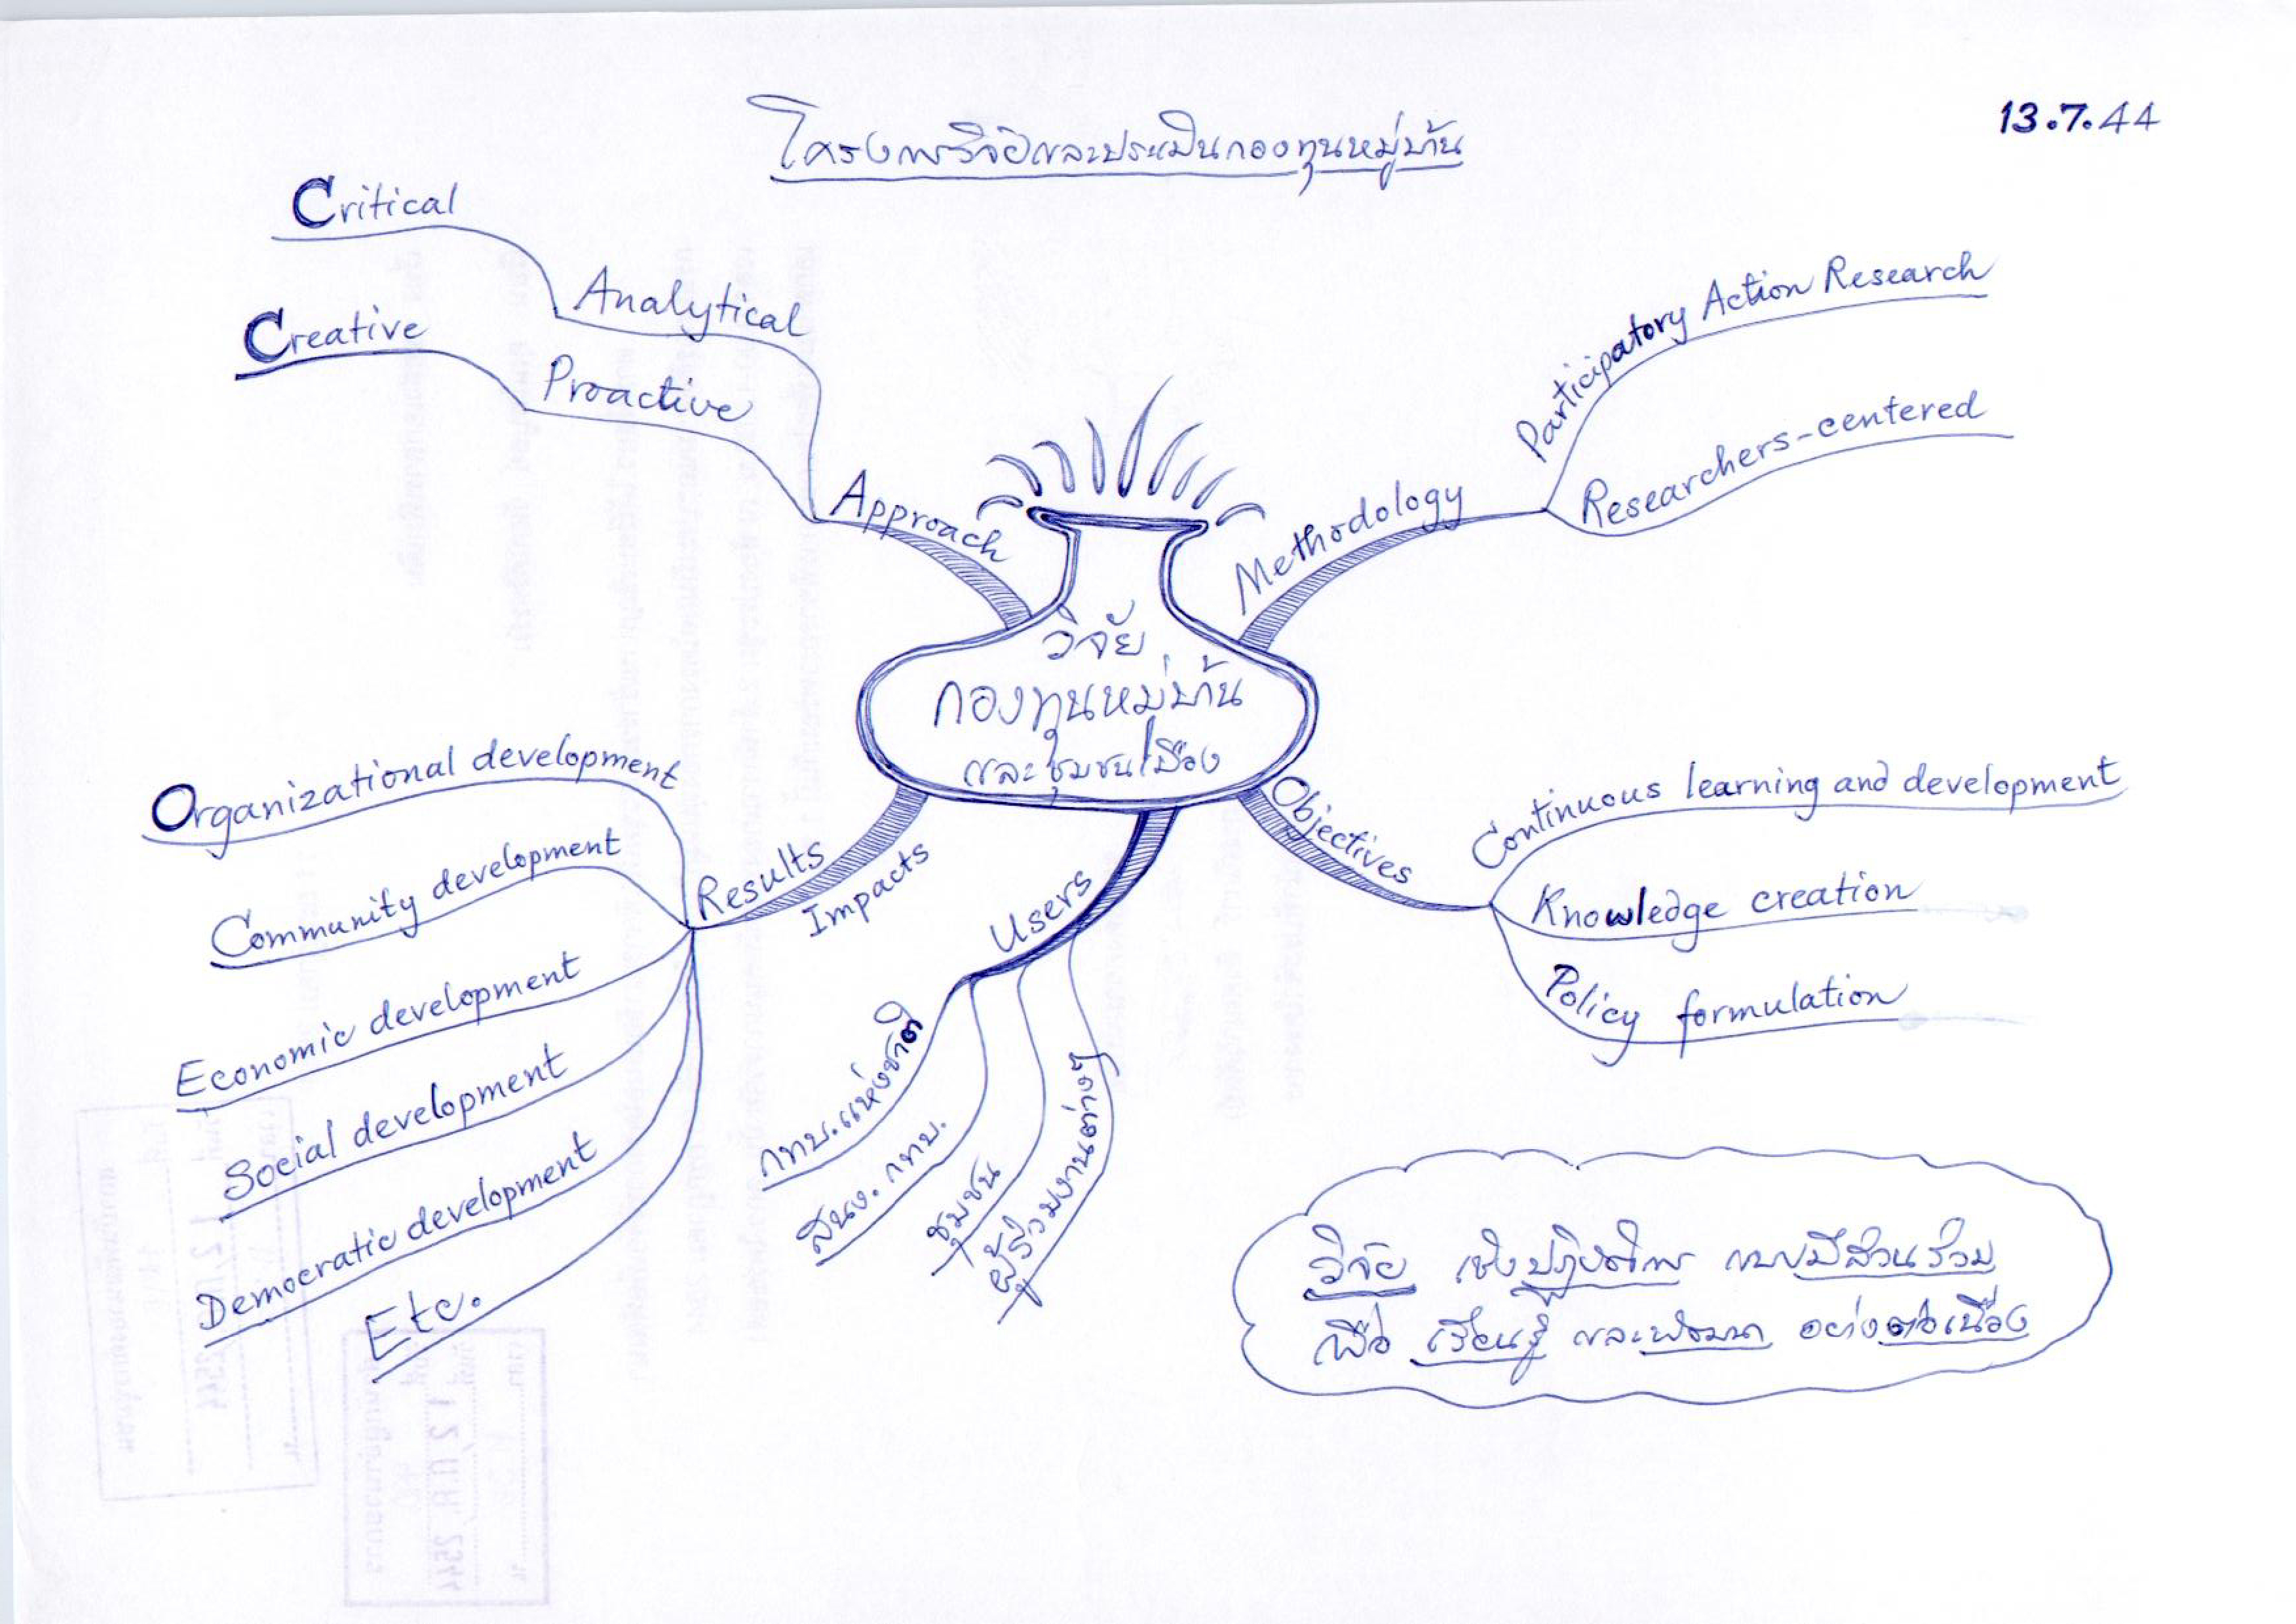 13.7.44
โครงการวิจัยและประเมินกองทุนหมู่บ้าน
Critical
Creative
Analytical
Proactive
Approach
Participatory Action Research
Researchers-centered
Methodology
วิจัย
กองทุนหมู่บ้าน
และชุมชนเมือง
Organizational development
Community development
Economic development
Social development
Democratic development
Etc.
Results
Impacts
Users
กทบ.แห่งชาติ
สนง. กทบ.
ชุมชน
ผู้ร่วมงานต่างๆ
Objectives
Continuous learning and development
Knowledge creation
Policy formulation
วิจัย เชิงปฏิบัติการ แบบมีส่วนร่วม
เพื่อ เรียนรู้ และพัฒนา อย่างต่อเนื่อง